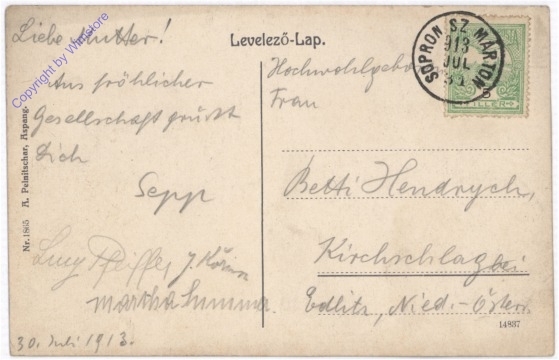 Liebe Mutter!
Aus fröhlicher
Gesellschaft grüsst
Dich
Sepp
Lucy Pfeiffer
Martha Summer
30. Juli 1913.
Nr. 1865 A. Pelnitschar, Aspang.
Copyright by Wimstore
Levelező-Lap.
Hochwohlgebo
Frau
Betti Hendrych,
Kirchschlag bei
Edlitz, Nied.-Österr.
SOPRON SZ. MÁRTON
913
JUL
FILLÉR
14837